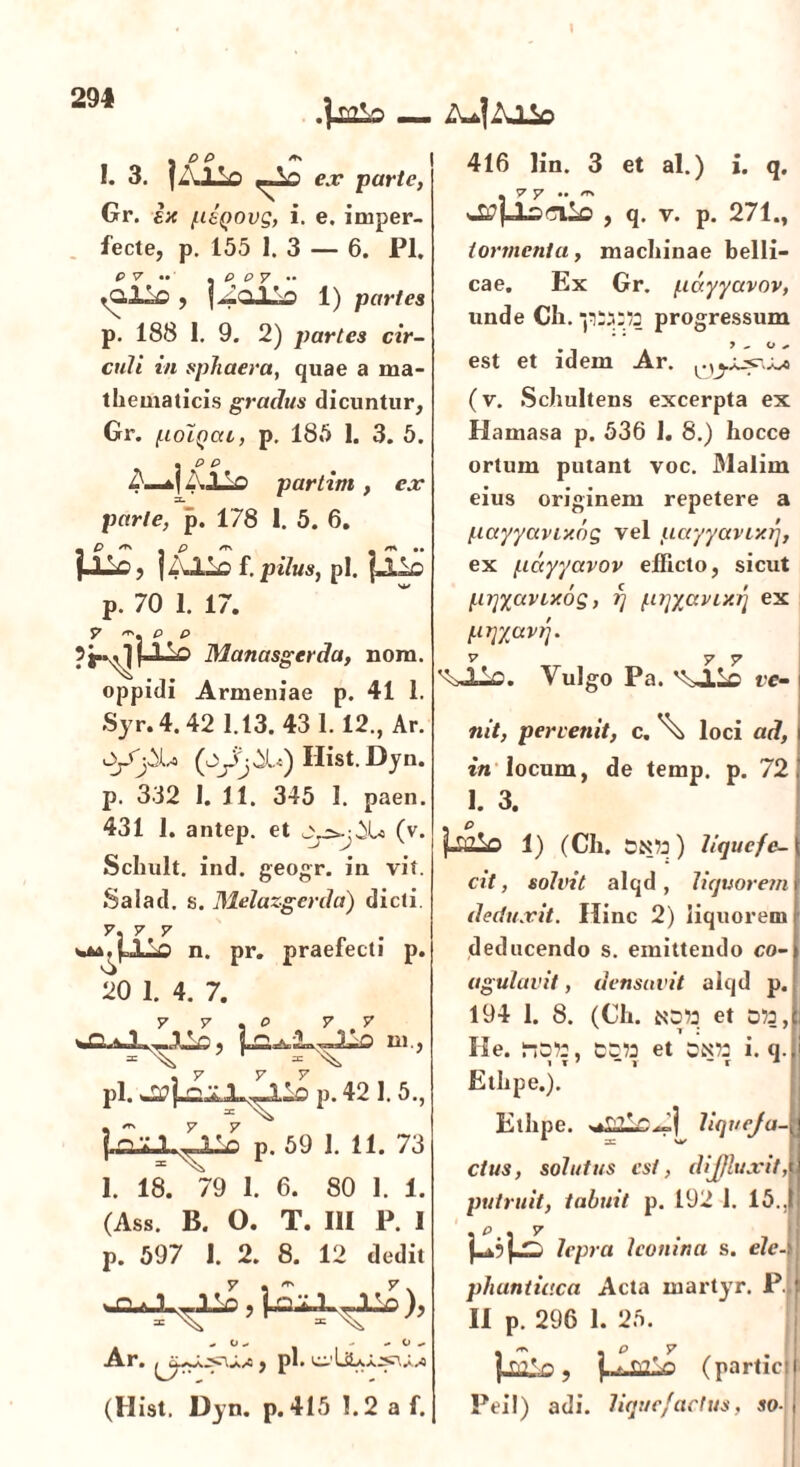 294
ܡܣܐ. — ܡܢܬܐܝܬ
l. 3. ܡܢ ܡܢܬܐ ex parte,
Gr. ἐκ μέρους, i. e. imper-
fecte, p. 155 l. 3 — 6. Pl.
1) partes
p. 188 l. 9. 2) partes cir-
culi in sphaera, quae a ma-
thematicis gradus dicuntur,
Gr. μοῖραι, p. 185 l. 3. 5.
ܡܢܬܐܝܬ partim, ex
parte, p. 178 l. 5. 6.
ܡܢܐ, ܡܢܬܐ f. pilus, pl. ܡܢܐ
p. 70 l. 17.
Manasgerda, nom.
oppidi Armeniae p. 41 l.
Syr. 4. 42 l.13. 43 l. 12., Ar.
Hist. Dyn.
p. 332 l. 11. 345 l. paen.
431 l. antep. et (v.
Schult. ind. geogr. in vit.
Salad. s. Melazgerda) dicti.
n. pr. praefecti p.
20 l. 4. 7.
ܡܢܓܠܝܩ, ܡܢܓܠܝܩܐ m.,
pl. p. 42 l. 5.,
p. 59 l. 11. 73
l. 18. 79 l. 6. 80 l. 1.
(Ass. B. O. T. III P. I
p. 597 l. 2. 8. 12 dedit
),
Ar. منجنيق, pl. منجنيقات
(Hist. Dyn. p. 415 l. 2 a f.
416 lin. 3 et al.) i. q.
, q. v. p. 271.,
tormenta, machinae belli-
cae. Ex Gr. μάγγανον,
unde Ch. מנגנון progressum
est et idem Ar. منجنون
(v. Schultens excerpta ex
Hamasa p. 536 l. 8.) hocce
ortum putant voc. Malim
eius originem repetere a
μαγγανικός vel μαγγανική,
ex μάγγανον efficto, sicut
μηχανικός, ἡ μηχανική ex
μηχανή.
ܡܢܥ. Vulgo Pa. ܡܢܥ ve-
nit, pervenit, c. ܠ loci ad,
in locum, de temp. p. 72
l. 3.
ܡܣܐ 1) (Ch. מאס) liquefe-
cit, solvit alqd, liquorem
deduxit. Hinc 2) liquorem
deducendo s. emittendo co-
agulavit, densavit alqd p.
194 l. 8. (Ch. מסא et מס,
He. מסה, מסס et מאס i. q.
Ethpe.).
Ethpe. ܐܬܡܣܝ liquefa-
ctus, solutus est, diffluxit,
putruit, tabuit p. 192 l. 15.,
lepra leonina s. ele-
phantiaca Acta martyr. P.
II p. 296 l. 25.
ܡܣܐ, ܡܣܝܐ (partic
Peil) adi. liquefactus, so-